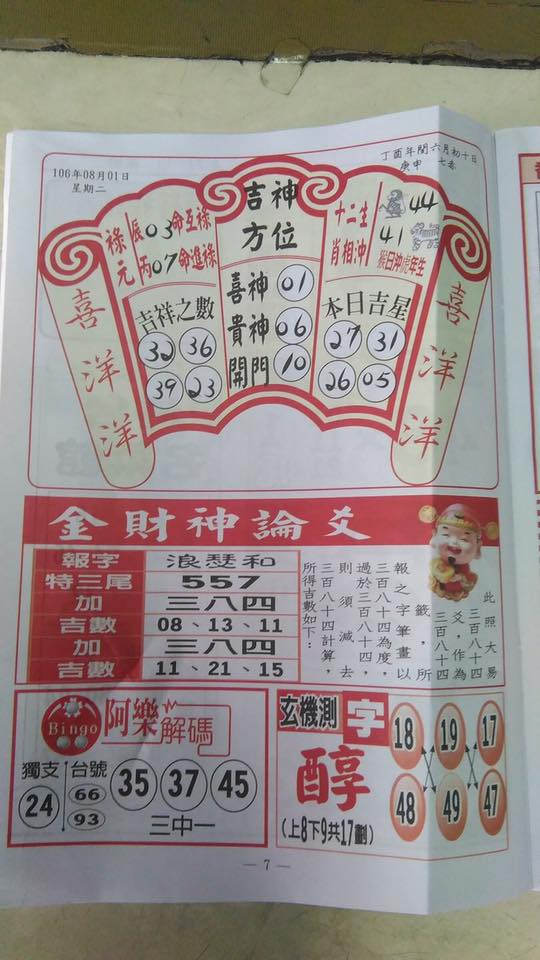 106年08月01日
星期二
丁酉年閏六月初十日
庚申 七赤
祿元
辰03命互祿
丙07命進祿
吉神
方位
十二生
肖相沖
44
41
猴日沖虎年生
喜洋洋
吉祥之數
32 36
39 23
喜神 01
貴神 06
開門 10
本日吉星
27 31
26 05
喜洋洋
金財神論爻
報字 浪瑟和
特三尾 557
加 三八四
吉數 08、13、11
加 三八四
吉數 11、21、15
此照大易
三百八十四
爻,作為
三百八十四
籤,所
報之字筆畫以
三百八十四為度,
過於三百八十四,
則須減去
三百八十四計算,
所得吉數如下:
Bingo
阿樂解碼
獨支 24
台號 66 93
35 37 45
三中一
玄機測字
醇
(上8下9共17劃)
18 19 17
48 49 47
— 7 —